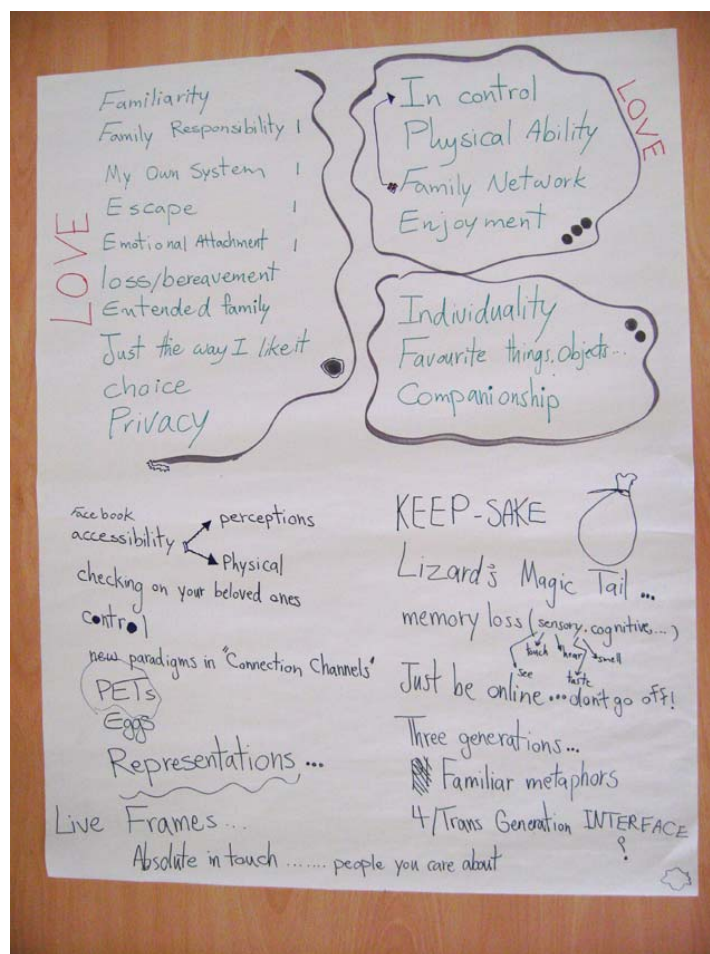 LOVE
Familiarity
Family Responsibility
My Own System
Escape
Emotional Attachment
loss/bereavement
Entended family
Just the way I like it
choice
Privacy
LOVE
In control
Physical Ability
Family Network
Enjoyment
Individuality
Favourite things, objects...
Companionship
Facebook
accessibility
perceptions
Physical
checking on your beloved ones
control
new paradigms in "Connection Channels"
PETs
Eggs
Representations ...
Live Frames...
Absolute in touch ....... people you care about
KEEP-SAKE
Lizard's Magic Tail ...
memory loss (sensory, cognitive, ...)
see touch taste hear smell
Just be online ... don't go off!
Three generations...
Familiar metaphors
4/Trans Generation INTERFACE
?